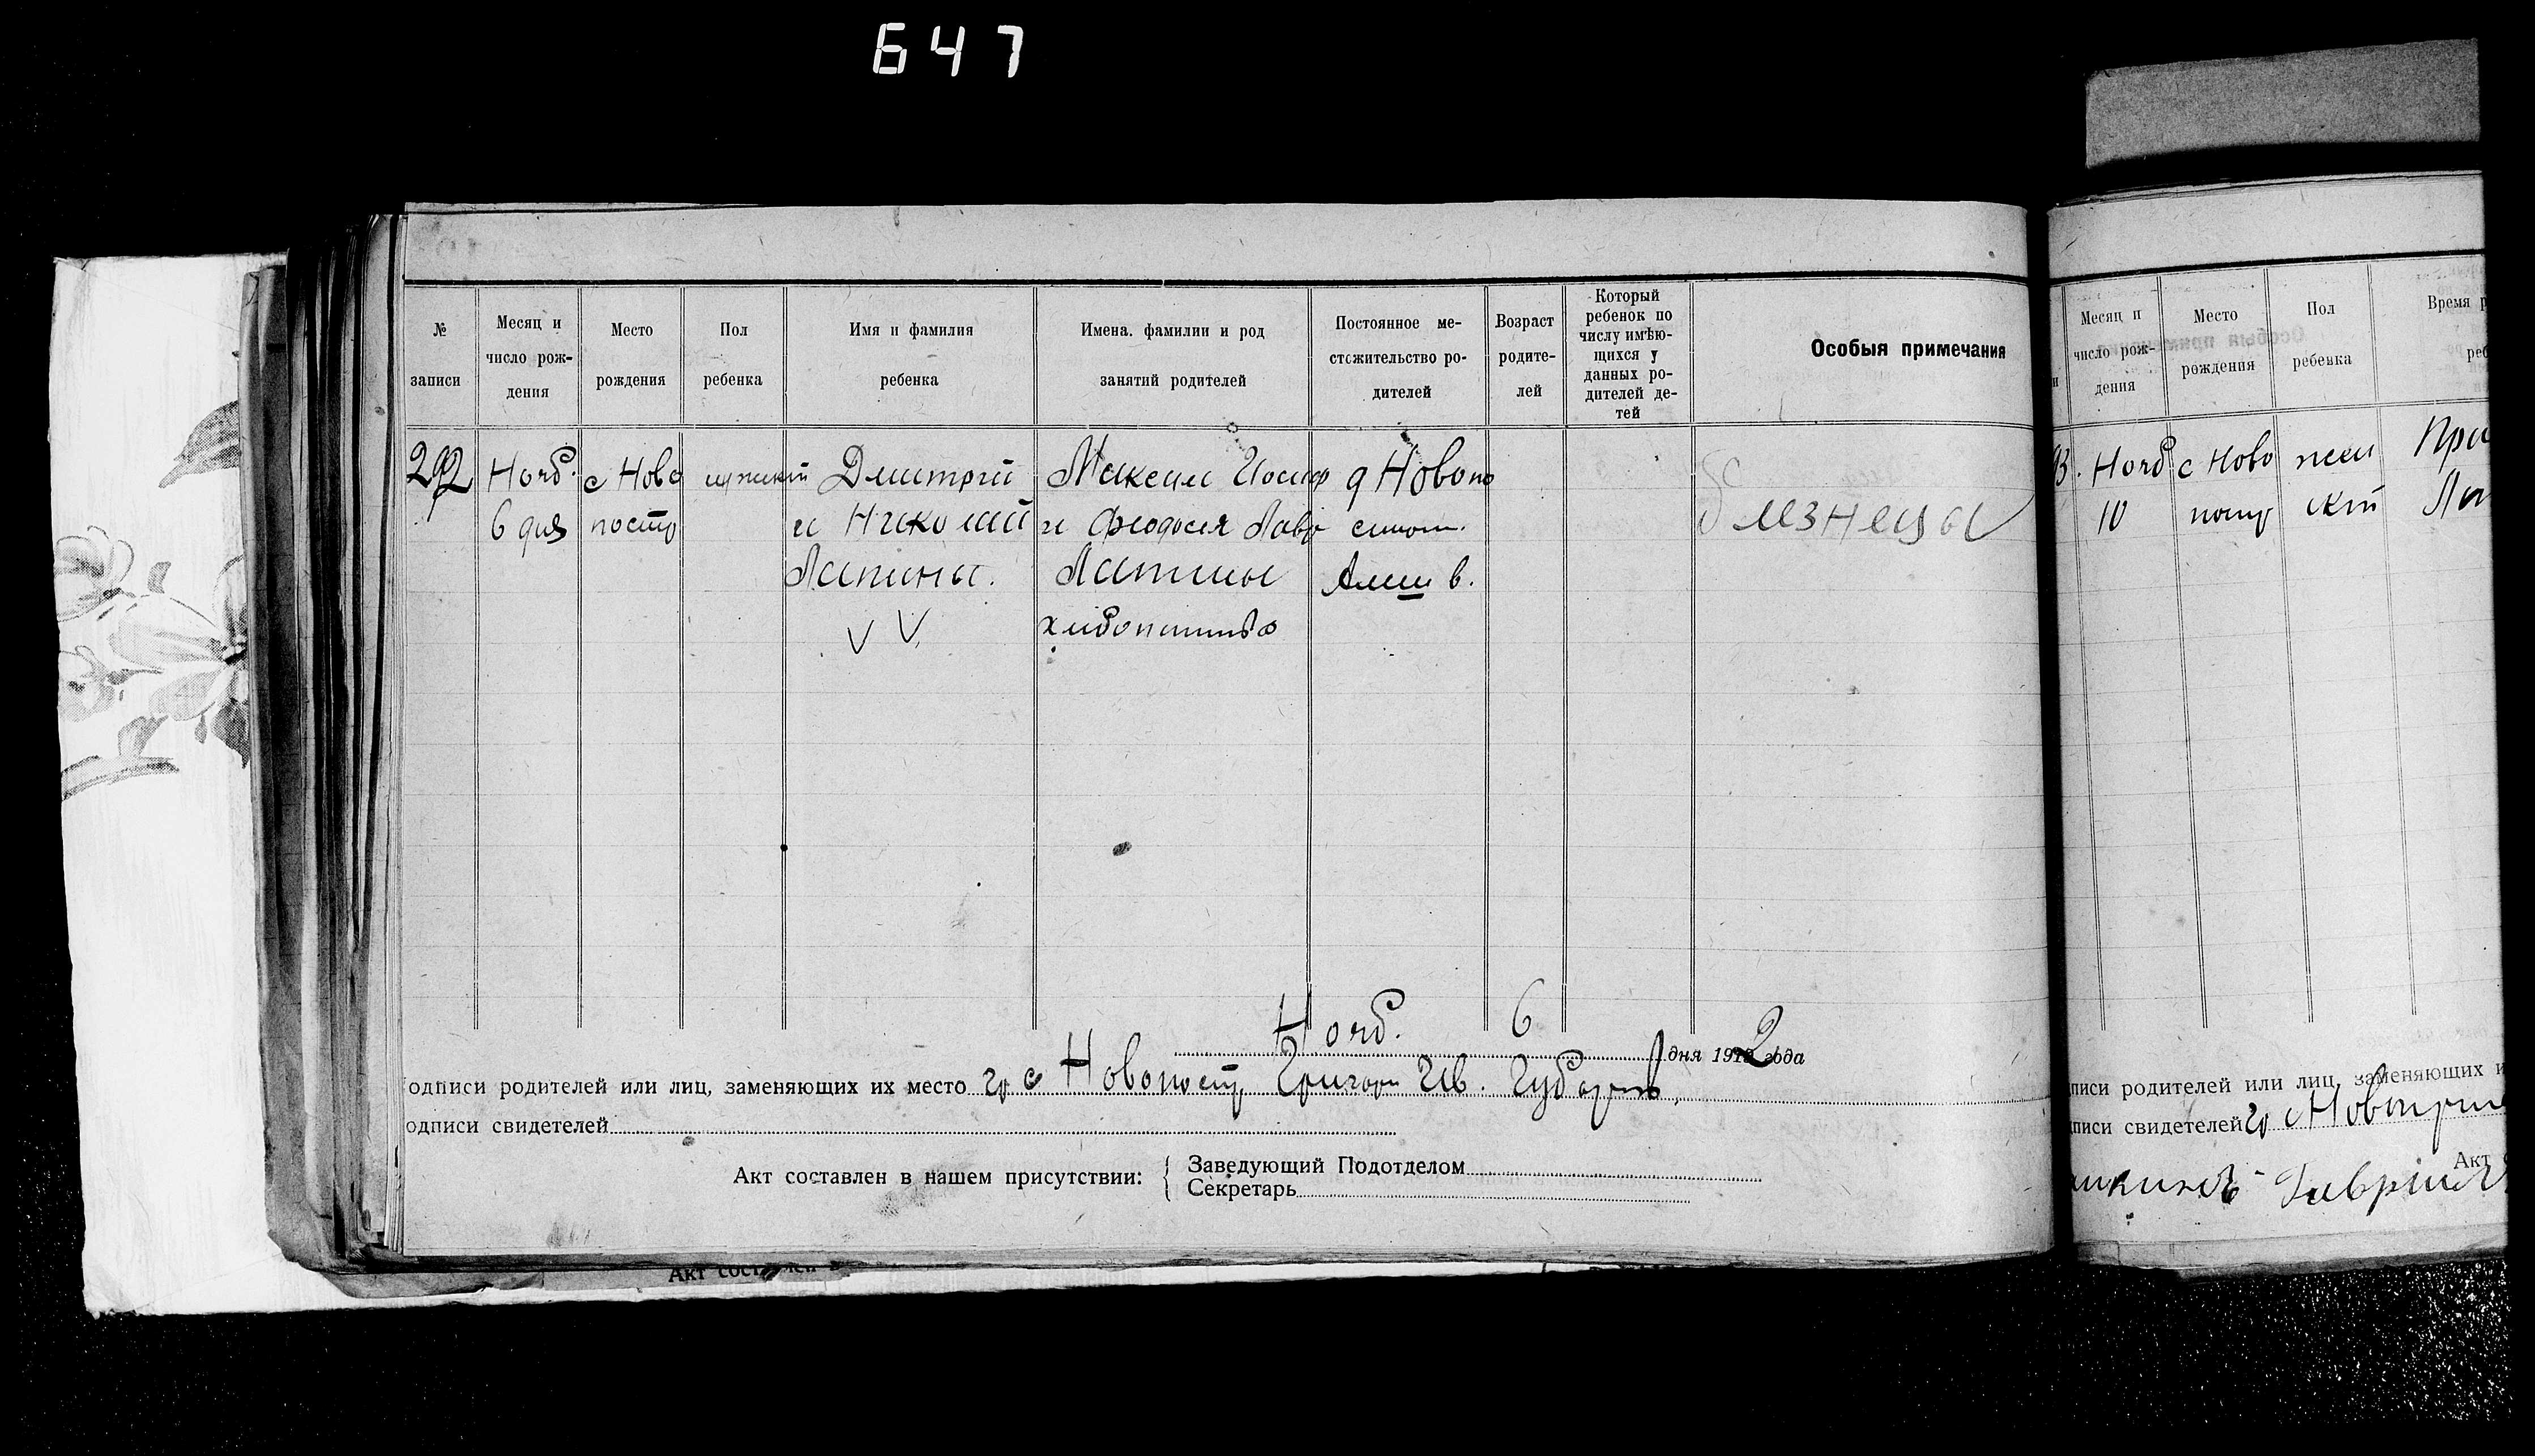 647
№ записи
Месяц и число рож-дения
Место рождения
Пол ребенка
Имя и фамилия ребенка
Имена. фамилии и род занятий родителей
Постоянное ме-стожительство ро-дителей
Возраст родите-лей
Который ребенок по числу имѣю-щихся у данных ро-дителей де-тей
Особыя примечания
292
Нояб. с Ново мужский Дмитрий Максим Иосиф д Новопо
6 дня постр и Николай и Феодосия Лавр
Лапины. Лапины
хлебопашество
близнецы
Нояб. 6 дня 1912 года
одписи родителей или лиц, заменяющих их место гр с Новопостр Григори Ив. Губарев
одписи свидетелей
Акт составлен в нашем присутствии: { Заведующий Подотделом
Секретарь
Акт составлен
Месяц и число рож-дения
Место рождения
Пол ребенка
Время р
реб
93. Нояб с Ново
10
писи родителей или лиц, заменяющих и
писи свидетелей гр
Акт